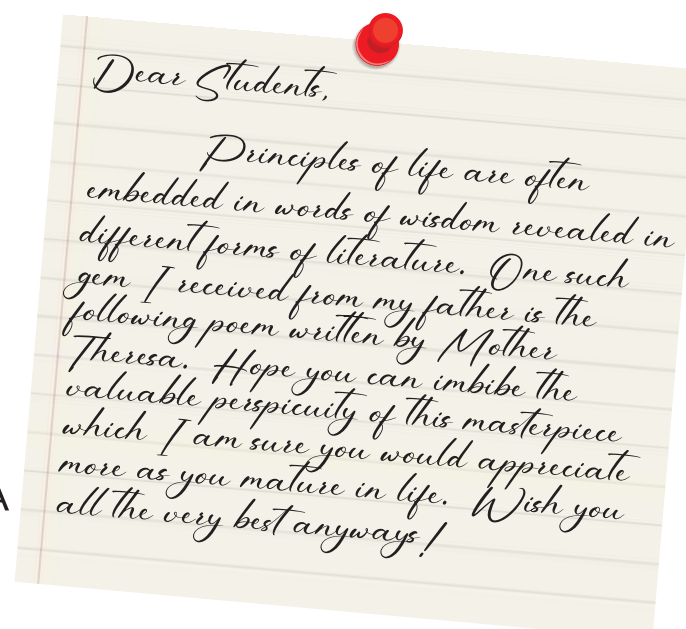 Dear Students,
Principles of life are often
embedded in words of wisdom revealed in
different forms of literature. One such
gem I received from my father is the
following poem written by Mother
Theresa. Hope you can imbibe the
valuable perspicuity of this masterpiece
which I am sure you would appreciate
more as you mature in life. Wish you
all the very best anyways!
A